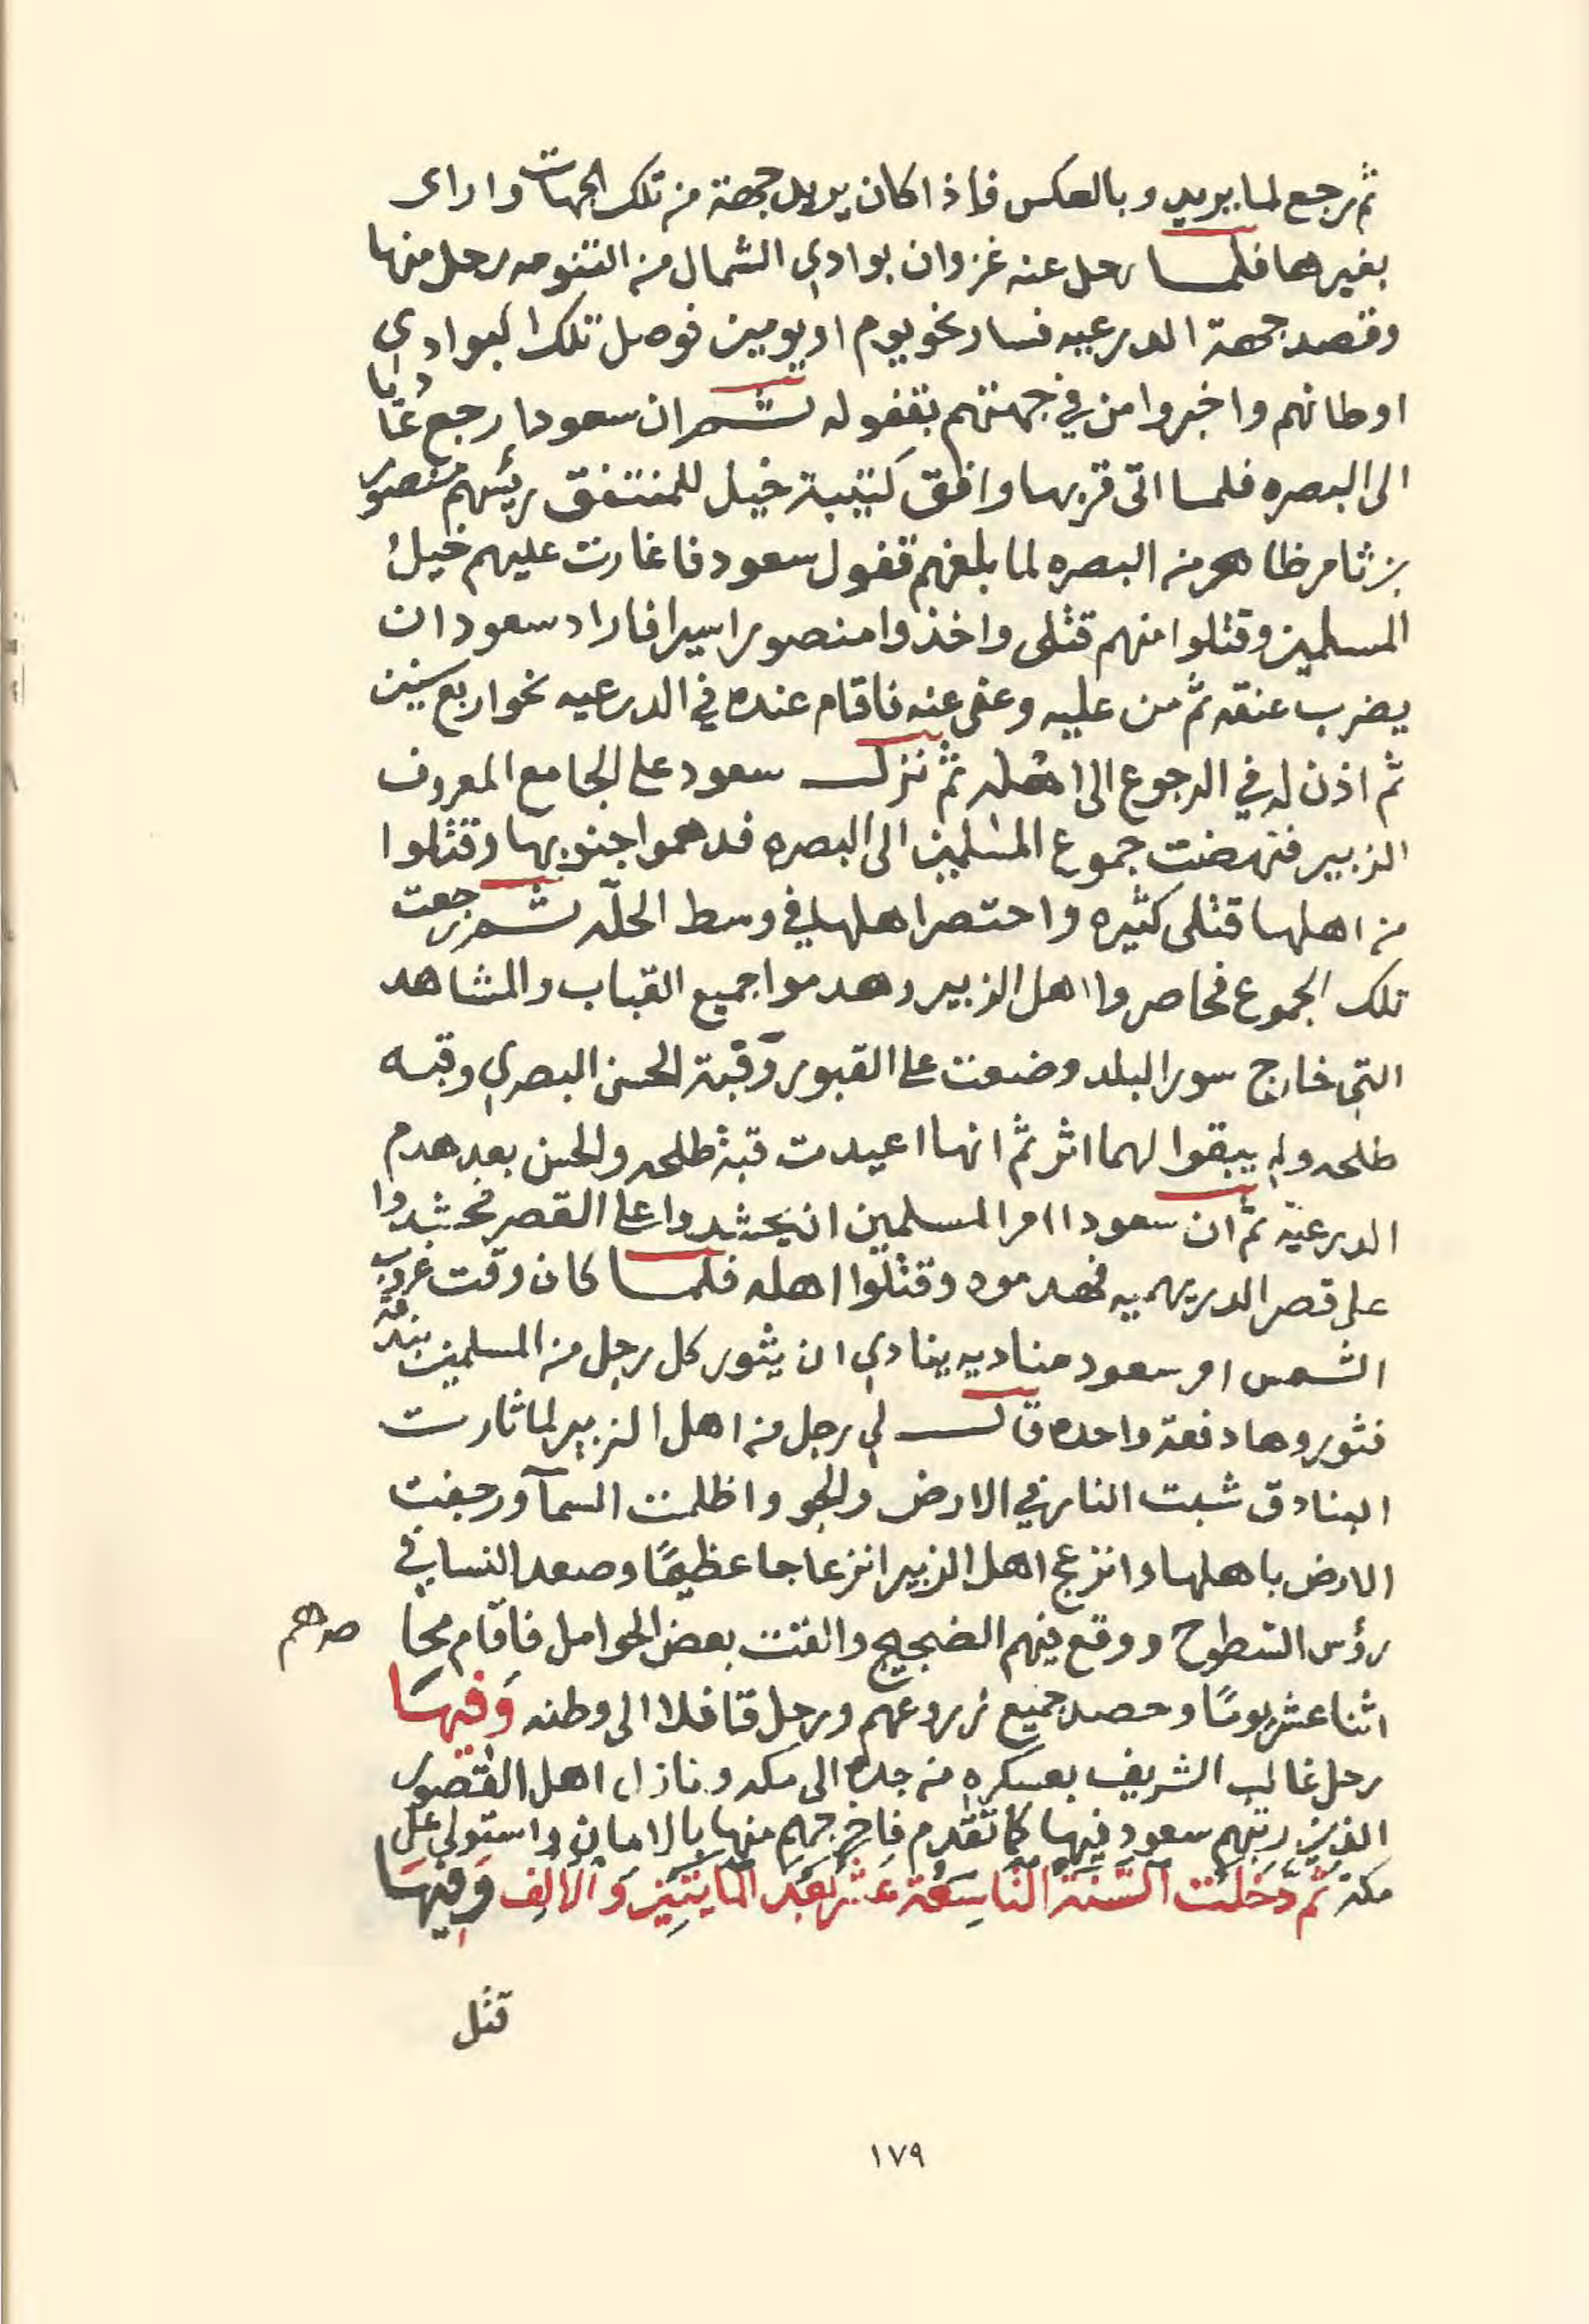 ثم رجع لما يريد وبالعكس فإذا كان يريد جهة من تلك الجهات وارای
بغيرها فلما رحل عنه غزوان بوادي الشمال من التنومه رحل منها
وقصد جهة الدرعيه فسار نحو يوم او يومين فوصل تلك البوادي
اوطانهم واخبروا من في جهتهم بقفوله ثم ان سعودا رجع غازيا
الى البصره فلما اتى قربها وافق كتيبة خيل للمنتفق رئيسهم منصور
بن ثامر ظاهر من البصره لما بلغهم قفول سعود فاغارت عليهم خيل
المسلمين وقتلوا منهم قتلى واخذوا منصورا اسيرا فاراد سعود ان
يضرب عنقه ثم من عليه وعفى عنه فاقام عنده في الدرعيه نحو اربع سنين
ثم اذن له في الرجوع الى اهله ثم نزل سعود على الجامع المعروف
الزبير فنهضت جموع المسلمين الى البصره فدهموا جنوبها وقتلوا
من اهلها قتلى كثيره واحتصر اهلها في وسط الحلّه ثم رجعت
تلك الجموع فحاصروا اهل الزبير وهدموا جميع القباب والمشاهد
التي خارج سور البلد وضعت على القبور وقبة الحسن البصري وقبه
طلحه ولم يبقوا لهما اثر ثم انها اعيدت قبة طلحه والحسن بعد هدم
الدرعية ثم ان سعودا امر المسلمين ان يحشدوا على القصر فحشدوا
على قصر الدريهميه فهدموه وقتلوا اهله فلما كان وقت غروب
الشمس امر سعود مناديه ينادي ان يثور كل رجل من المسلمين بندقه
فثوروها دفعة واحده قال لي رجل من اهل الزبير لما ثارت
البنادق شبت النار في الارض والجو واظلمت السمآ ورجفت
الارض باهلها وانزعج اهل الزبير انزعاجا عظيمًا وصعد النسا في
رؤس السطوح ووقع فيهم الضجيج والقت بعض الحوامل فاقام محا صرهم
اثنا عشر يومًا وحصد جميع زروعهم ورحل قافلا الى وطنه وَفيهَا
رحل غالب الشريف بعسكره من جده الى مكه ونازل اهل القصور
الذين رتبهم سعود فيها كما تقدم فاخرجهم منها بالامان واستولى على
مكة ثُمَّ دَخَلَتْ السَّنَة التَّاسِعَة عَشْر بَعْدَ المَايَتَيْنِ وَالْأَلْف وَفِيهَا
قتل
١٧٩